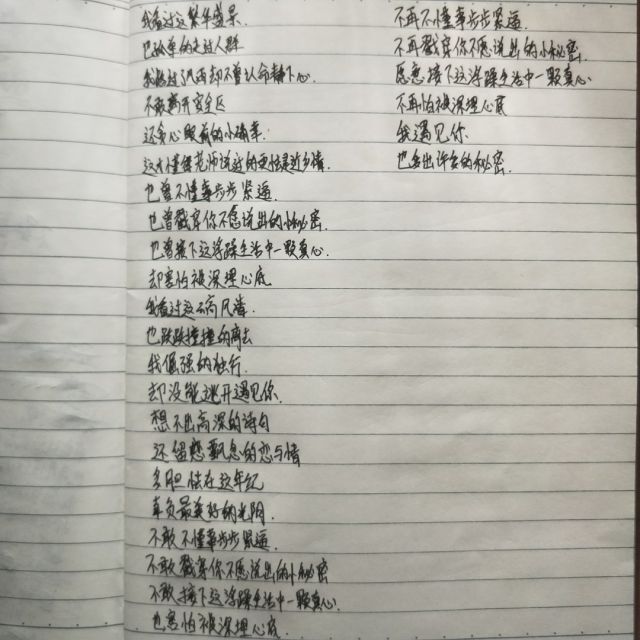 我看过这繁华盛景
已孤单的走过人群
我路过风雨却不曾认命静下心.
不敢离开安全区
还贪心眼前的小确幸.
这才懂得老师说过的更怯是近乡情
也曾不懂事步步紧逼.
也曾戳穿你不愿说出的小秘密.
也曾接下这浮躁生活中一颗真心.
却害怕被深埋心底
我看过这云高风清.
也跌跌撞撞的离去
我倔强的独行
却没能逃开遇见你.
想不出高深的诗句
还留恋飘忽的恋与情
多胆怯在这年纪
辜负最美好的光阴.
不敢不懂事步步紧逼.
不敢戳穿你不愿说出的小秘密
不敢接下这浮躁生活中一颗真心.
也害怕被深埋心底.
不再不懂事步步紧逼.
不再戳穿你不愿说出的小秘密.
愿意接下这浮躁生活中一颗真心
不再怕被深埋心底
我遇见你
也多出许多的秘密.